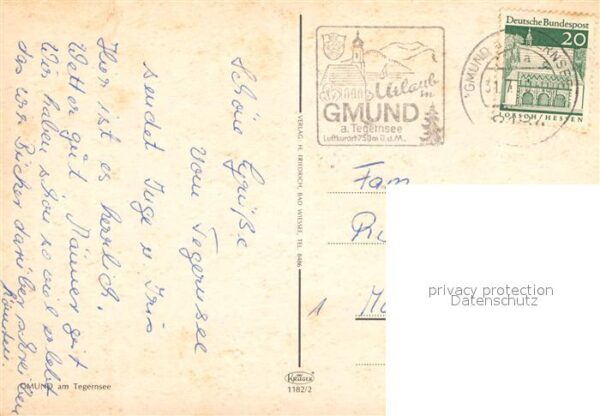 Schöne Grüße
vom Tegernsee
sendet Inge u Iris
Hier ist es herrlich.
Wetter gut Männer gut
Wir haben schon so viel erlebt
das wir Bücher darüber schreiben
könnten.
GMUND am Tegernsee
VERLAG H. FRIEDRICH, BAD WIESSEE, TEL. 8486
Krüger
1182/2
Urlaub
in
GMUND
a. Tegernsee
Luftkurort 750 m ü.d.M.
GMUND a. TEGERNSEE
Deutsche Bundespost
20
LORSCH / HESSEN
Fam
1
privacy protection
Datenschutz